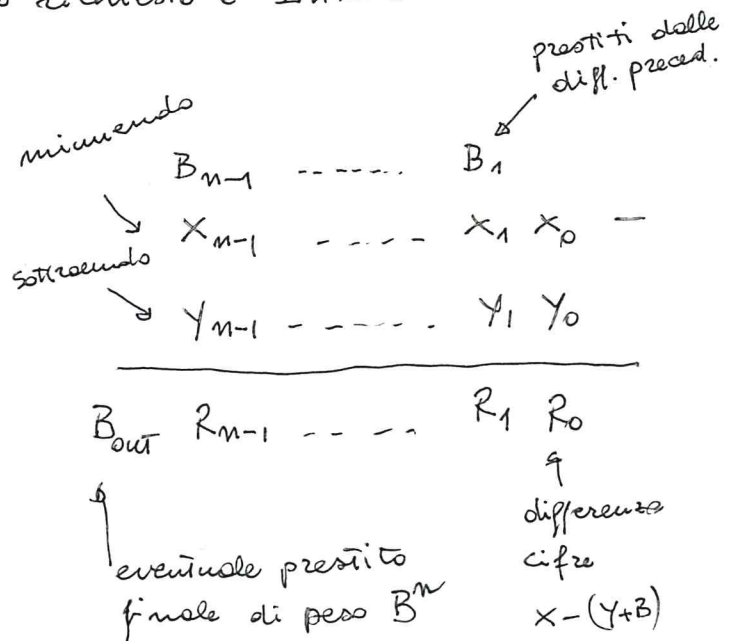 prestiti dalle
diff. preced.
minuendo
B_{n-1} ------- B_1
X_{n-1} ----- X_1 X_0 —
sottraendo
Y_{n-1} ------- Y_1 Y_0
B_{out} R_{n-1} ----- R_1 R_0
differenze
cifre
X-(Y+B)
eventuale prestito
finale di peso B^n